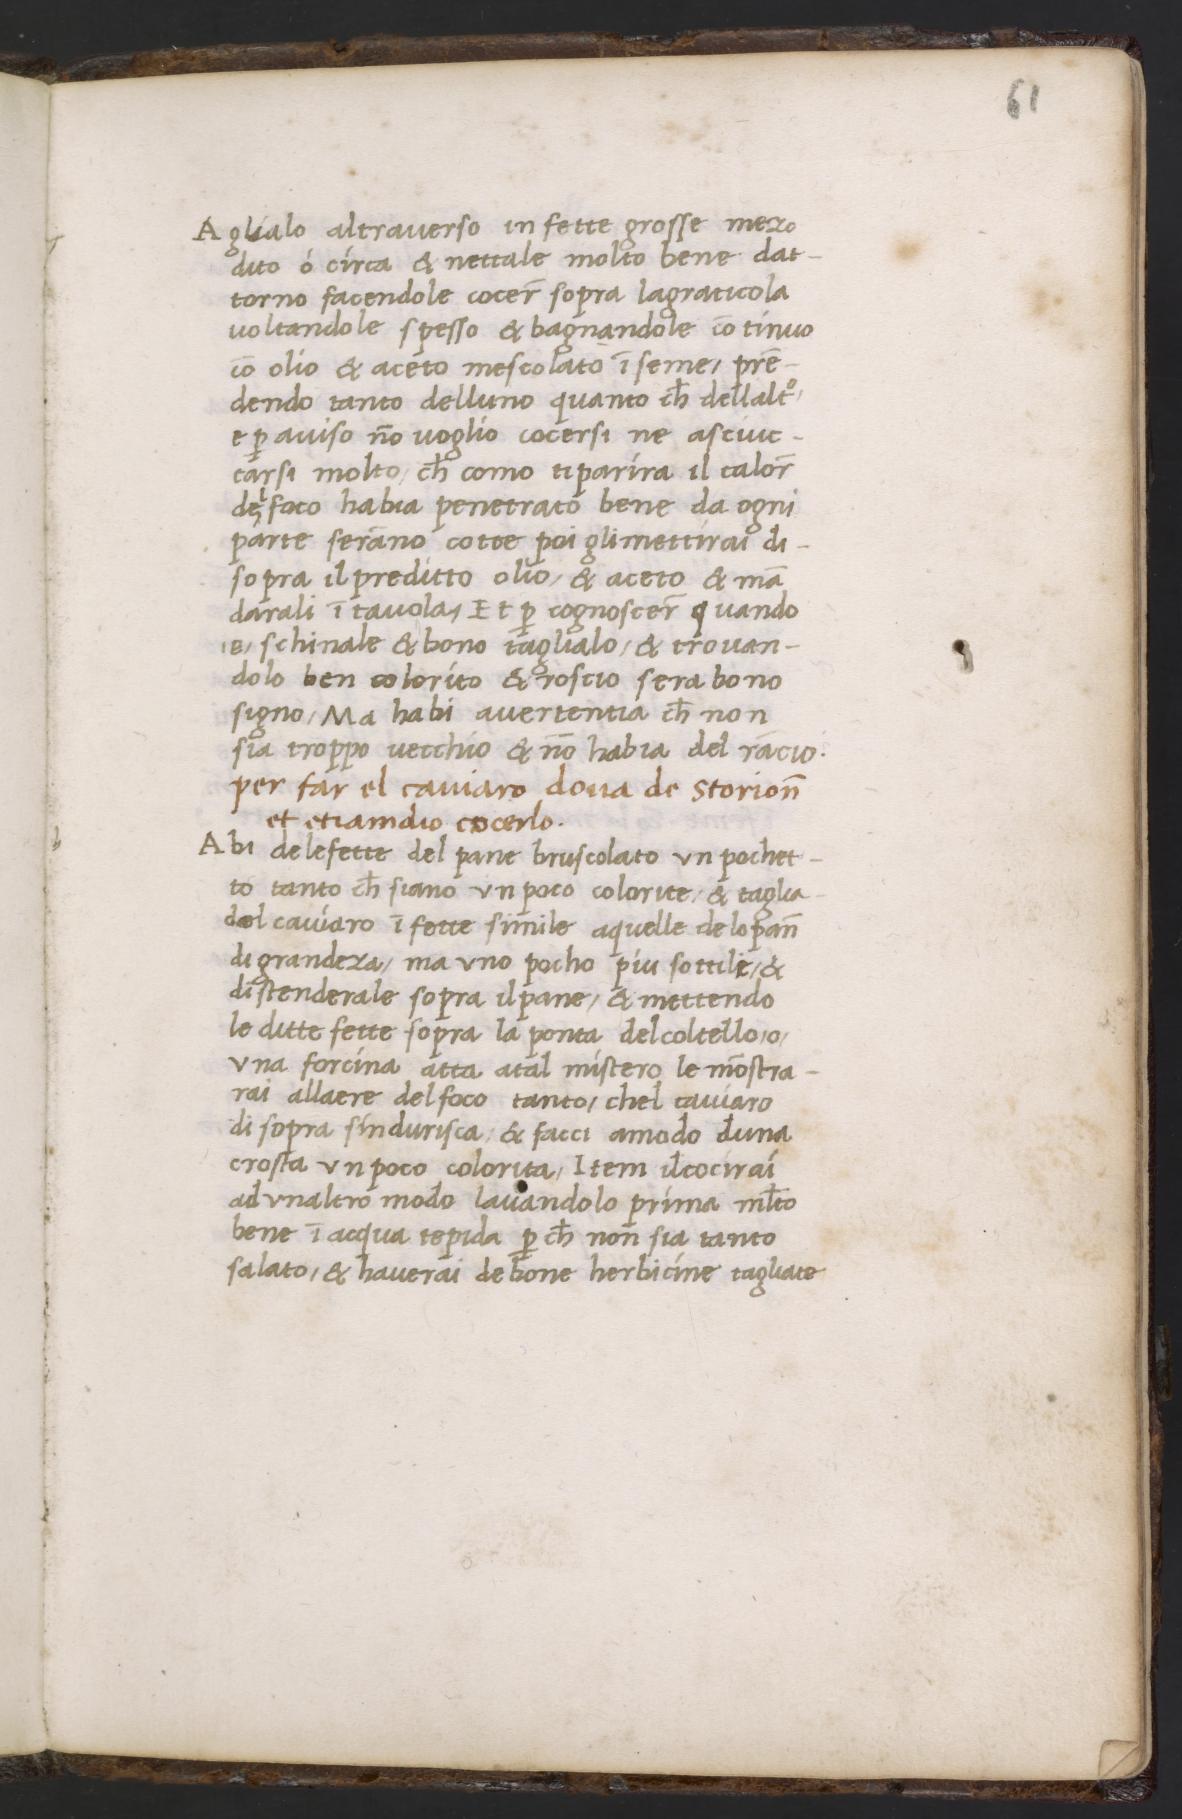 61
Aglialo altraverso in fette grosse mezo
dito ó circa & nettale molto bene dat-
torno facendole cocer̄ sopra lagraticola
voltandole spesso & bagnandole cō tinuo
cō olio & aceto mescolato ī seme, prē-
dendo tanto delluno quanto ch̄ dellaltº,
e ꝑ aviso nō voglio cocersi ne asciuc-
tarsi molto, ch̄ como tiparira il calor̄
del foco habia penetrato bene da ogni
parte serāno cotte poi glimettirai di-
sopra ilpreditto olio, & aceto & mā
darali ī tavola, Et ꝑ cognoscer̄ quando
ie, schinale & bono taglialo, & trovan-
dolo ben colorito & roscio sera bono
signo, Ma habi avertentia ch̄ non
sia troppo vecchio & nō habia del rācio.
per far el caviaro dova de Storion̄
et etiamdio cocerlo.
Abi delefette del pane bruscolato un pochet-
to tanto ch̄ siano un poco colorite, & taglia
del caviaro ī fette simile aquelle de lo pan̄
di grandeza, ma uno pocho piu sottile, &
distenderale sopra ilpane, & mettendo
le ditte fette sopra la ponta delcoltello, o,
una forcina atta atal mistero le mōstra-
rai allaere delfoco tanto, chel caviaro
di sopra sindurisca, & facci amodo duna
crosta un poco colorita, Item ilcocirai
ad unaltro modo lavandolo prima ml̄to
bene ī acqua tepida ꝑ ch̄ non̄ sia tanto
salato, & haverai de bone herbicine tagliate